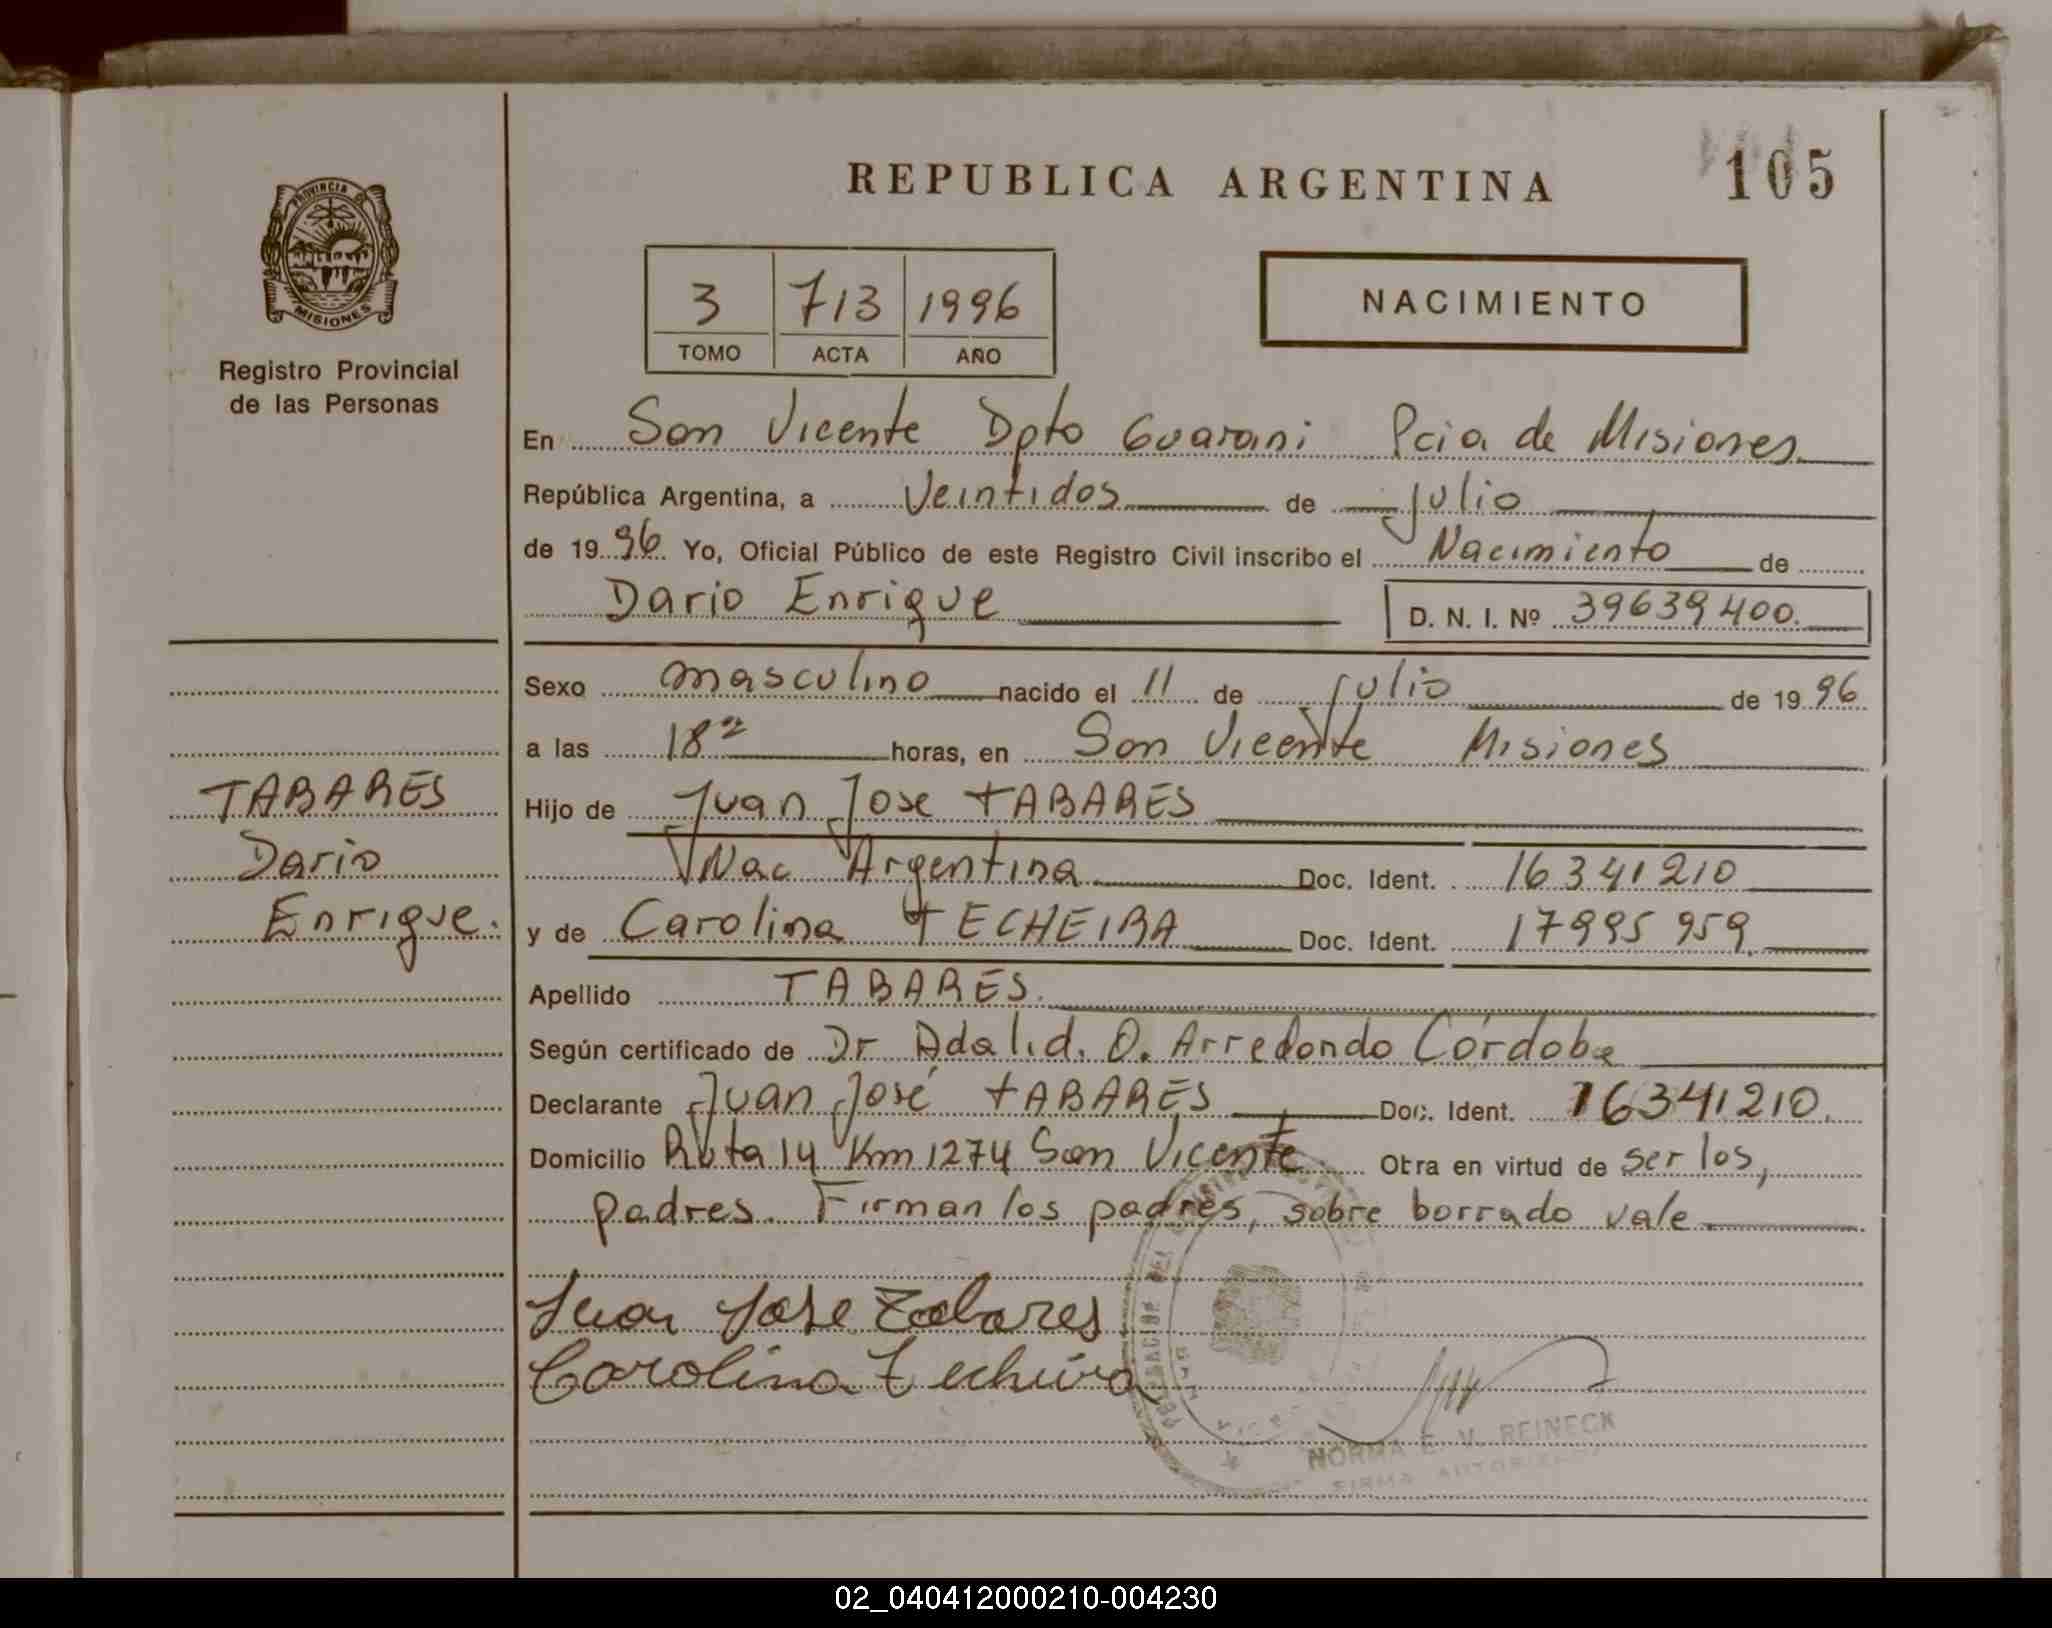 REPUBLICA ARGENTINA
105
PROVINCIA DE
MISIONES
Registro Provincial
de las Personas
3 713 1996
TOMO ACTA AÑO
NACIMIENTO
En San Vicente Dpto Guarani Pcia de Misiones
República Argentina, a Veintidos de Julio
de 1996 Yo, Oficial Público de este Registro Civil inscribo el Nacimiento de
Dario Enrique D. N. I. Nº 39639400.
Sexo masculino nacido el 11 de Julio de 1996
a las 18 horas, en San Vicente Misiones
TABARES
Dario
Enrique.
Hijo de Juan Jose TABARES
Nac Argentina Doc. Ident. 16341210
y de Carolina TECHEIRA Doc. Ident. 17995959
Apellido TABARES.
Según certificado de Dr Adalid. O. Arredondo Córdoba
Declarante Juan José TABARES Doc. Ident. 16341210.
Domicilio Ruta 14 Km 1274 San Vicente Otra en virtud de ser los,
padres. Firman los padres, sobre borrado vale
Juan Jose Tabares
Carolina Techeira
NORMA E. V. REINECK
FIRMA AUTORIZADA
02_040412000210-004230